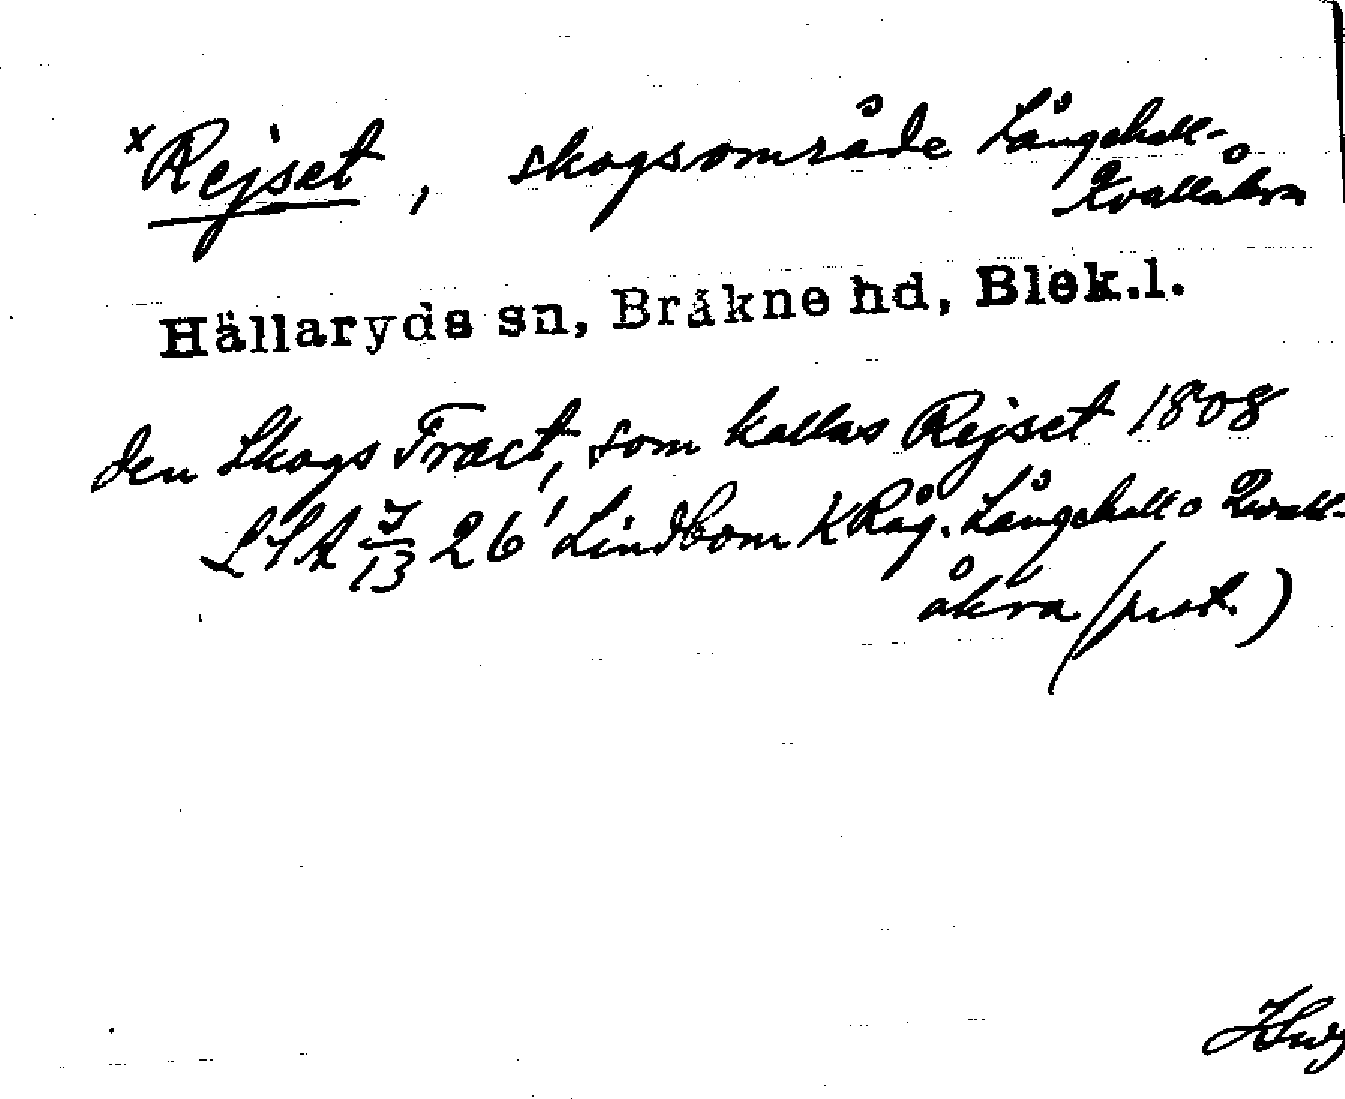 x Rejset, skogsområde Långehall-
Kvallåkra
Hällaryds sn, Bräkne hd, Blek.l.
den Skogs Tract, som kallas Rejset 1808
LSA J/13 26¹ Lindbom K Råg. Långehall o Qvall-
åkra (prot.)